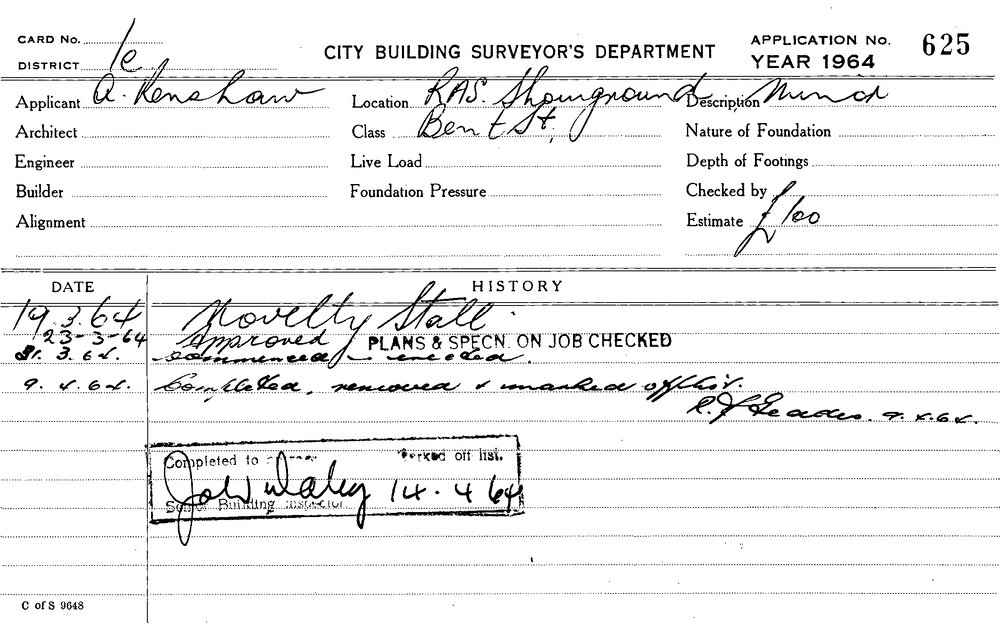 CARD No.
DISTRICT 1e
CITY BUILDING SURVEYOR'S DEPARTMENT
APPLICATION No. 625
YEAR 1964
Applicant A. Renshaw Location RAS. Showground Description Minor
Architect Class Bent St. Nature of Foundation
Engineer Live Load Depth of Footings
Builder Foundation Pressure Checked by
Alignment Estimate £100
DATE HISTORY
19.3.64 Novelty Stall.
23-3-64 Approved PLANS & SPECN. ON JOB CHECKED
31.3.64. commenced & erected.
9.4.64. Completed, removed & marked off list.
9.4.64.
Completed to marked off list.
14.4 64
Senior Building Inspector.
C of S 9648